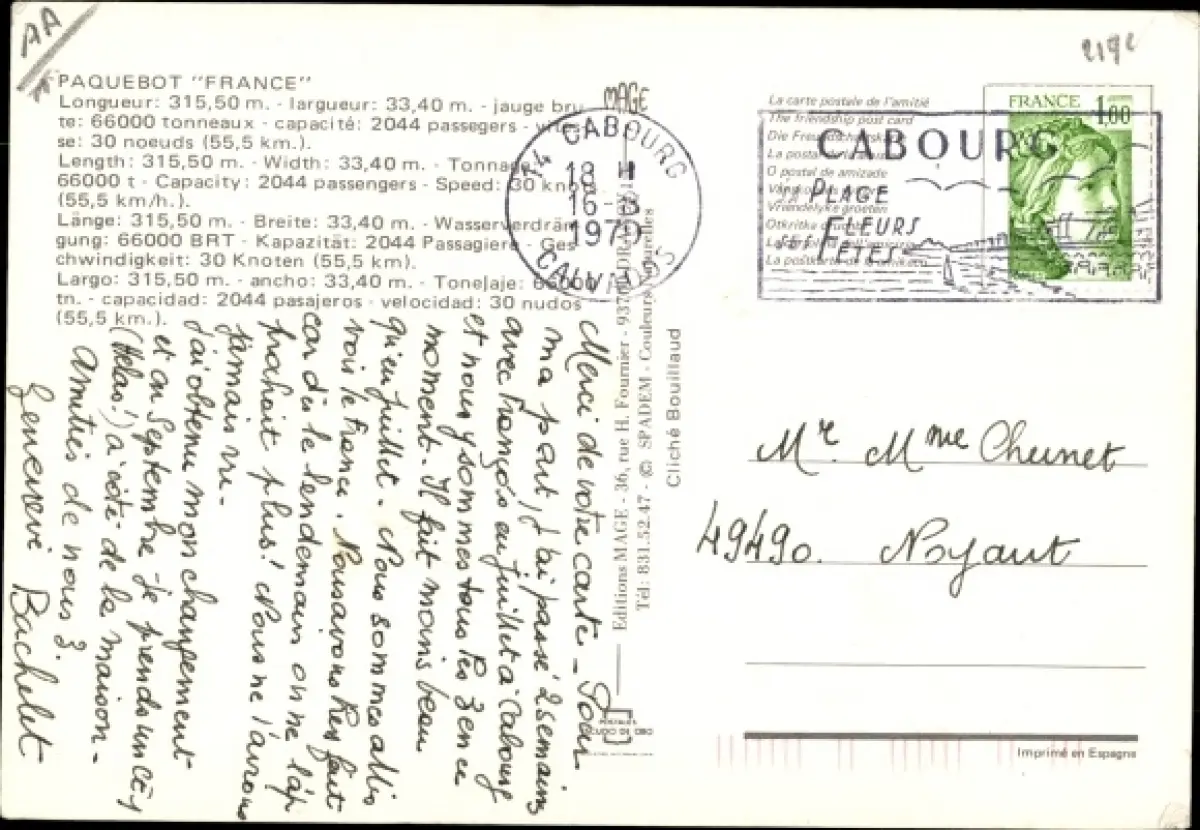 AA
PAQUEBOT "FRANCE"
Longueur: 315,50 m. - largueur: 33,40 m. - jauge bru-
te: 66000 tonneaux - capacité: 2044 passegers - vites-
se: 30 noeuds (55,5 km.).
Length: 315,50 m. - Width: 33,40 m. - Tonnage:
66000 t - Capacity: 2044 passengers - Speed: 30 knots
(55,5 km/h.).
Länge: 315,50 m. - Breite: 33,40 m. - Wasserverdrän-
gung: 66000 BRT - Kapazität: 2044 Passagiere - Ges-
chwindigkeit: 30 Knoten (55,5 km).
Largo: 315,50 m. - ancho: 33,40 m. - Tonelaje: 66000
tn. - capacidad: 2044 pasajeros - velocidad: 30 nudos
(55,5 km.).
Merci de votre carte - Pour
ma part, j'ai passé 2 semaines
avec François en juillet à Cabourg
et nous y sommes tous les 3 en ce
moment. Il fait moins beau
qu'en juillet. Nous sommes allés
voir le France. Nous avons bien fait
car dès le lendemain on ne l'ap
prochait plus! Nous ne l'avions
jamais vu.
J'ai obtenu mon changement
et en Septembre je prends un CE1
(Hélas!) à côté de la maison.
Amitiés de nous 3
Geneviève Bachelet
MAGE
14 CABOURG
18 H
16-8
1979
CALVADOS
Editions MAGE - 36, rue H. Fournier - 937
Tél: 831.52.47 - © SPADEM - Couleurs naturelles
Cliché Bouillaud
POSTALES
ESCUDO DE ORO
La carte postale de l'amitié
The friendship post card
Die Freundschaftskarte
O postal de amizade
Vriendelyke groeten
CABOURG
SA PLAGE
SES FLEURS
SES FÊTES
FRANCE 1,00
Mr Mme Cheunet
49490. Noyant
Imprimé en Espagne